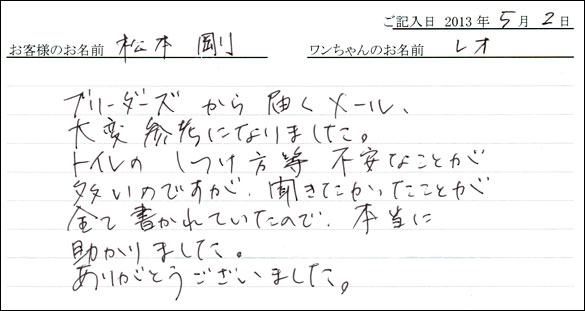 ご記入日 2013 年 5 月 2 日
お客様のお名前 松本 剛 ワンちゃんのお名前 レオ
ブリーダーズ から 届くメール、
大変 参考になりました。
トイレの しつけ方等 不安なことが
多いのですが、聞きたかったことが
全て 書かれていたので、本当に
助かりました。
ありがとうございました。